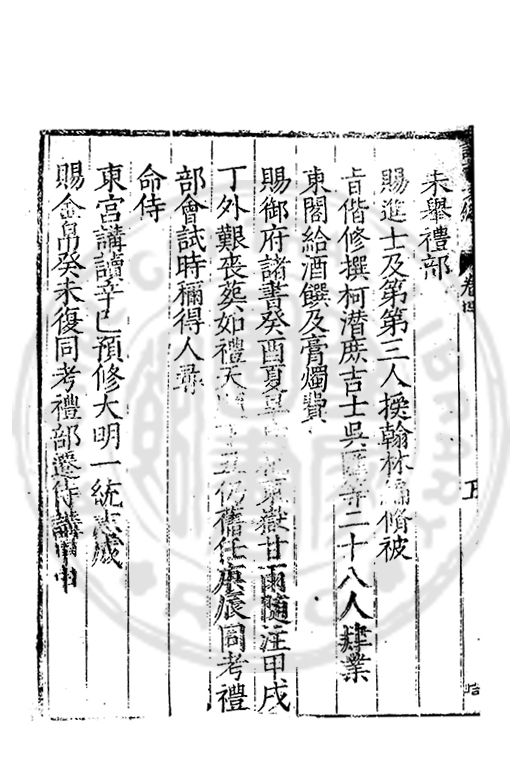 未舉禮部
賜進士及第第三人授翰林編脩被
旨偕修撰柯潛庶吉士吳匯等二十八人肄業
東閣給酒饌及膏燭費
賜御府諸書癸酉夏東嶽甘雨隨注甲戌
丁外艱喪葬如禮天仍舊任庚辰同考禮
部會試時稱得人尋
命侍
東宮講讀辛巳預修大明一統志成
賜金帛癸未復同考禮部遷侍講甲申
卷四